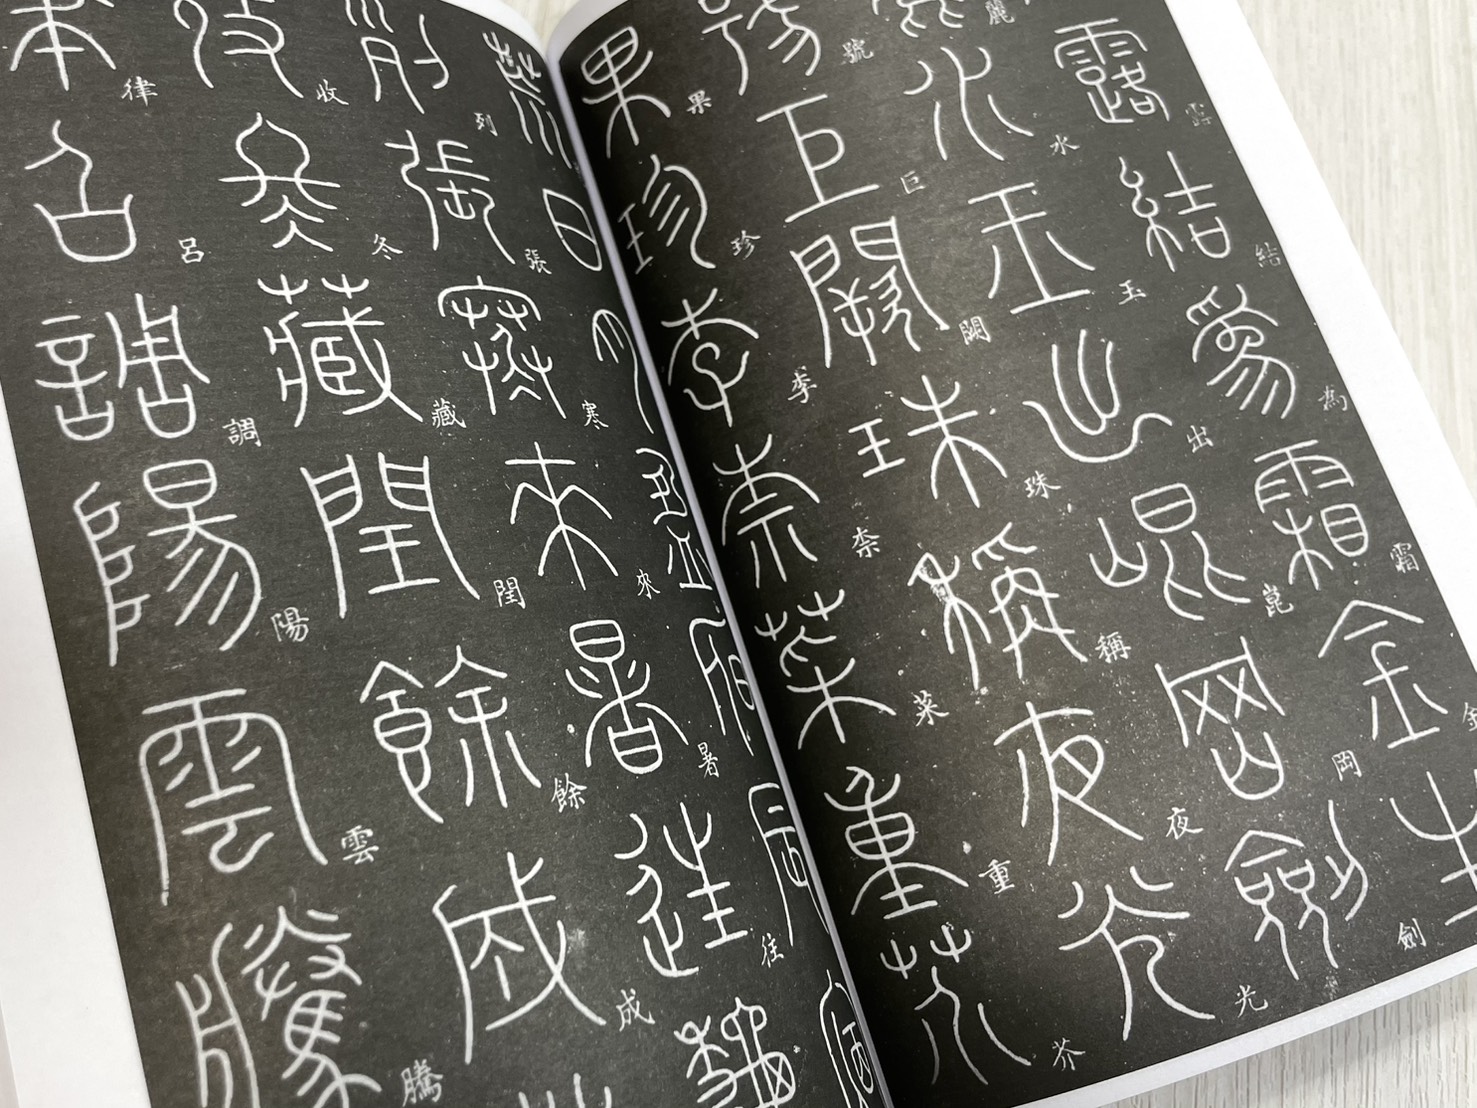 露結為霜金生
麗水玉出崑岡劍
號巨闕珠稱夜光
果珍李柰菜重芥
荒日月盈昃辰宿
列張寒來暑往秋
收冬藏閏餘成
律呂調陽雲騰